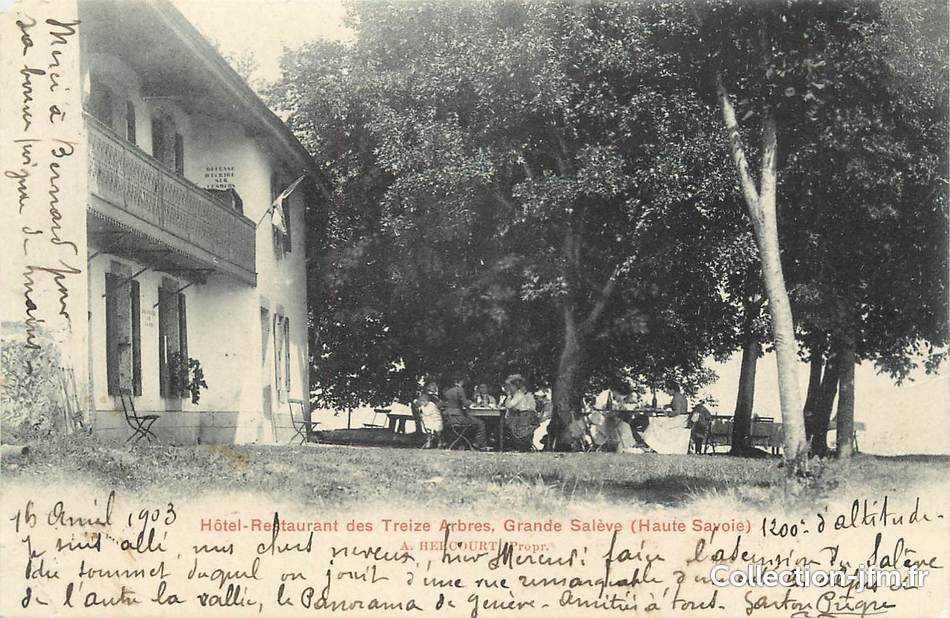 Merci à Bernard pour
sa bonne poignée de mains
DÉFENSE
D'ÉCRIRE
SUR
Hôtel-Restaurant des Treize Arbres, Grande Salève (Haute Savoie) 1200m d'altitude.
A. HELCOURT, Propr.
16 Avril 1903
Je suis allé, mes chers neveux, hier Mercredi faire l'ascension du Salève
du sommet duquel on jouit d'une vue remarquable d'un
de l'autre la vallée, le Panorama de Genève. Amitiés à tous. Gaston
Collection-jfm.fr